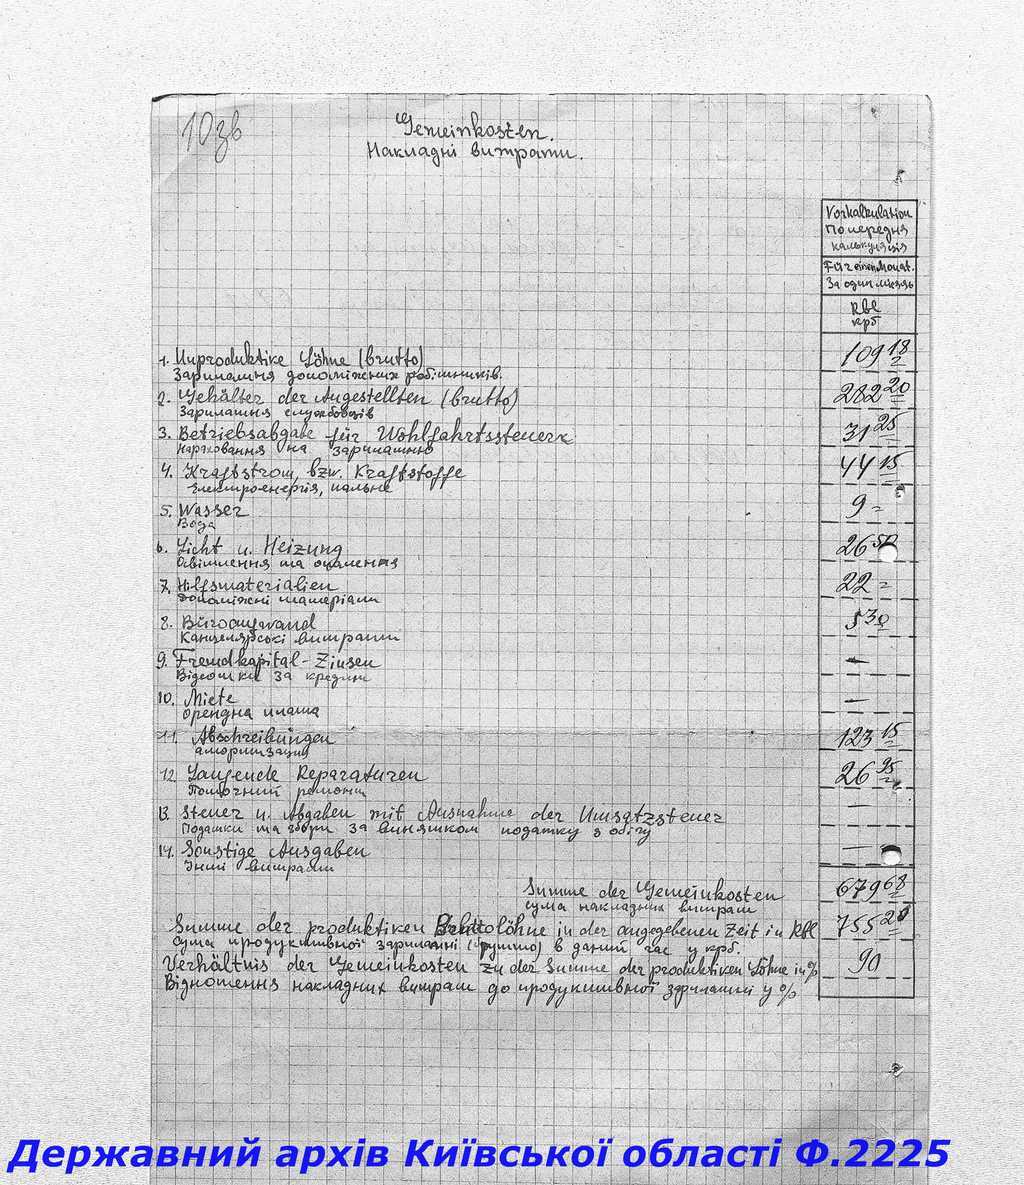 10зв
Gemeinkosten.
Накладні витрати.
Vorkalkulation
Попередня
калькуляція
Für einen Monat.
За один місяць
Rbl
крб
1. Unproduktive Löhne (brutto) 109 18
Зарплатня допоміжних робітників.
2. Gehälter der Angestellten (brutto) 282 20
Зарплатня службовців
3. Betriebsabgabe für Wohlfahrtssteuern 31 25
нараховання на зарплатню
4. Kraftstrom, bzw. Kraftstoffe 44 15
Електроенергія, пальне
5. Wasser 9 =
Вода
6. Licht u. Heizung 26 50
Освітлення та опалення
7. Hilfsmaterialien 22 =
Допоміжні матеріали
8. Büroaufwand 5 30
Канцелярські витрати
9. Fremdkapital-Zinsen —
Відсотки за кредит
10. Miete —
орендна плата
11. Abschreibungen 123 15
амортизація
12. Laufende Reparaturen 26 95
Поточний ремонт
13. Steuer u. Abgaben mit Ausnahme der Umsatzsteuer —
Податки та збори за винятком податку з обігу
14. Sonstige Ausgaben —
Інші витрати
Summe der Gemeinkosten 679 68
сума накладних витрат
Summe der produktiven Bruttolöhne in der angegebenen Zeit in Rbl 755 20
сума продуктивної зарплатні (брутто) в даний час у крб.
Verhältnis der Gemeinkosten zu der Summe der produktiven Löhne in % 90
Відношення накладних витрат до продуктивної зарплатні у %
Державний архів Київської області Ф.2225